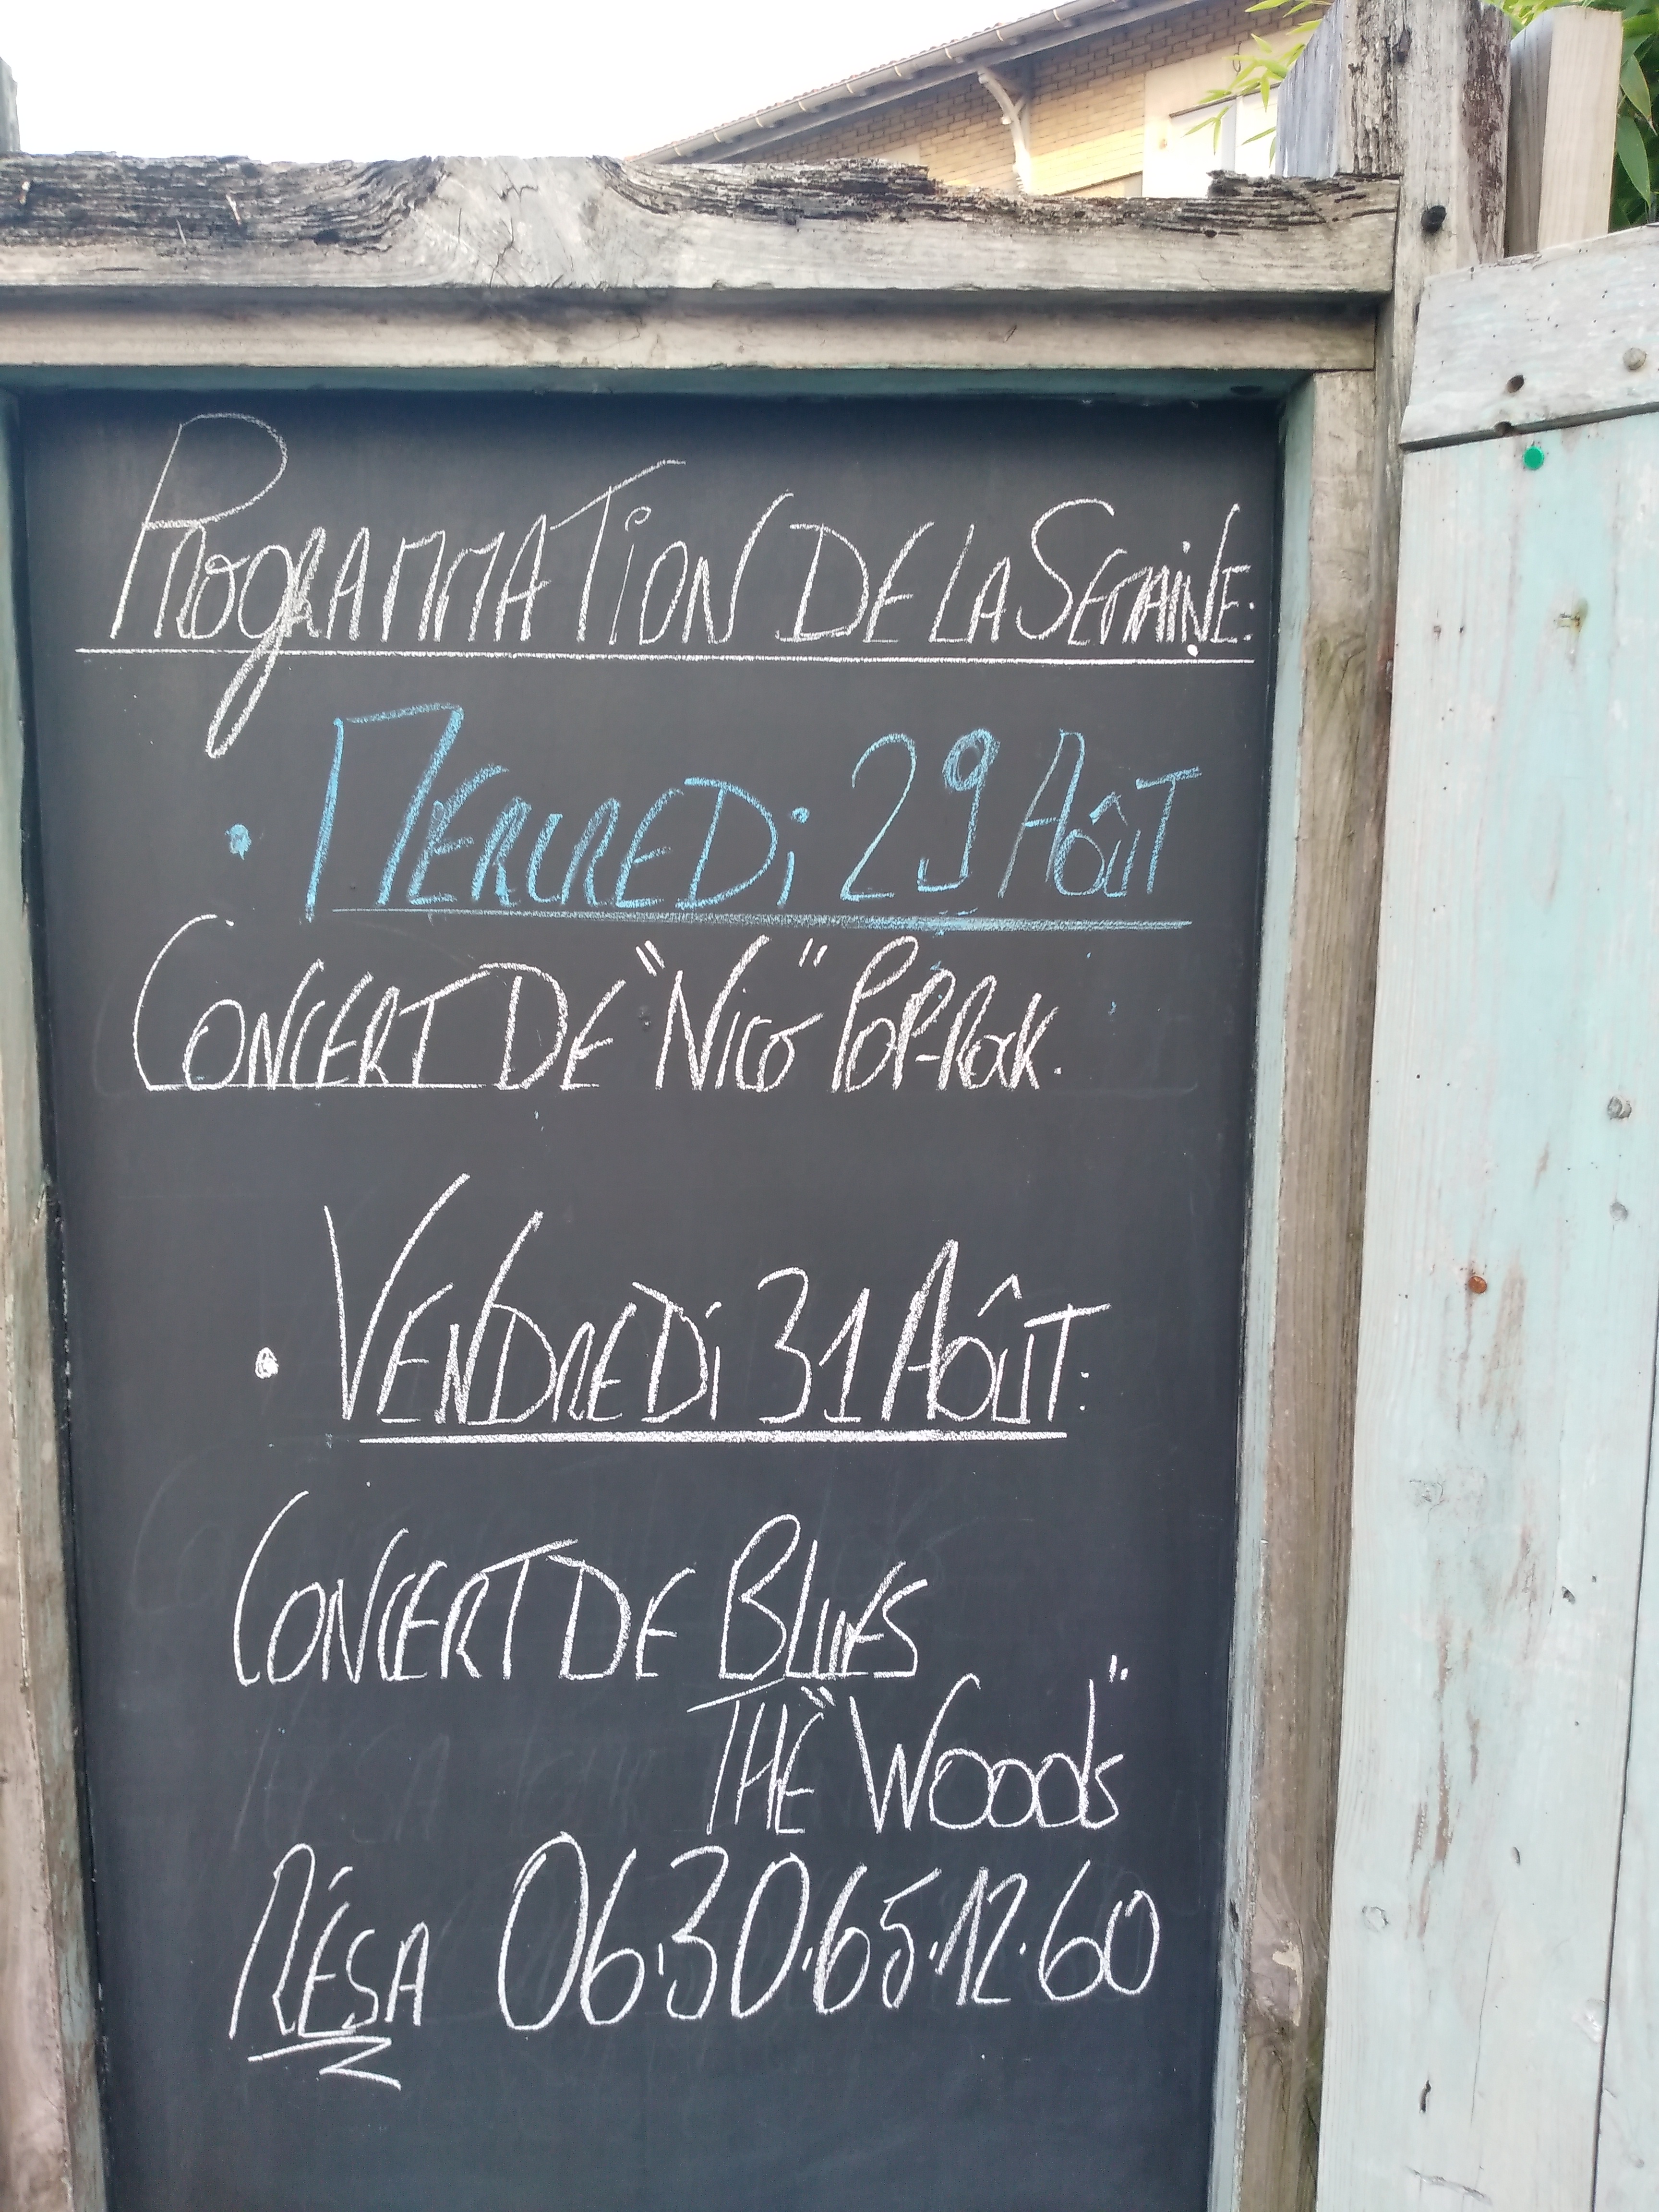 PROGRAMMATION DE LA SEMAINE:
• MERCREDI 29 AOÛT
CONCERT DE "NICO" POP-ROCK.
• VENDREDI 31 AOÛT:
CONCERT DE BLUES
THE "WOOODS"
RÉSA 06.30.65.12.60